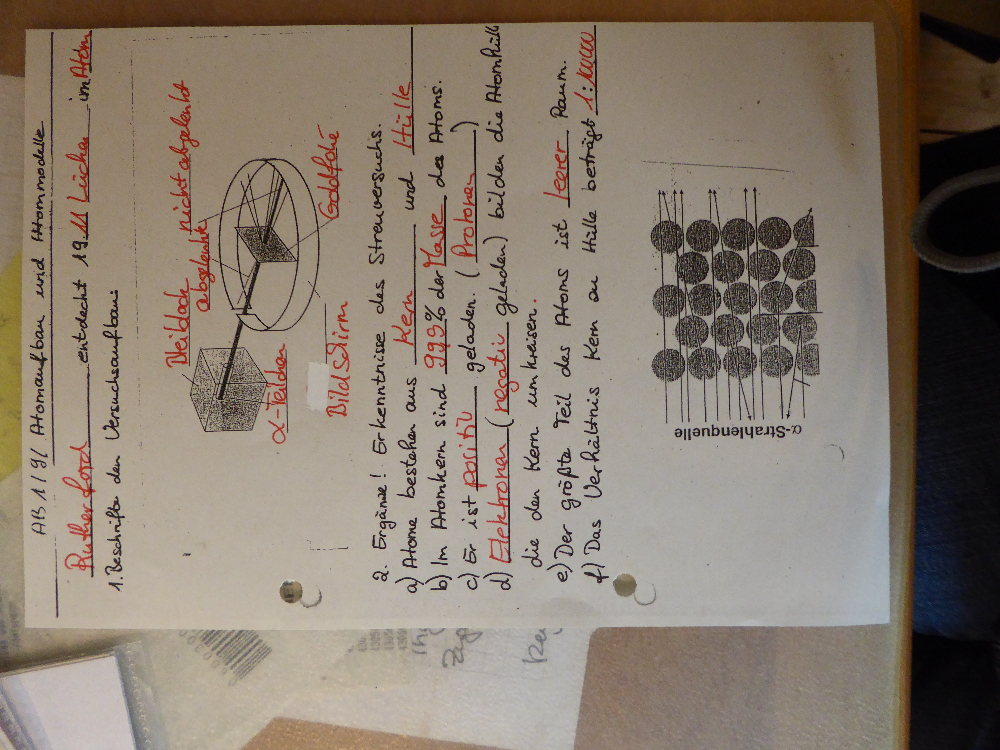 AB 1 / 9 / Atomaufbau und Atommodelle
Rutherford entdeckt 19 11 Lücken im Atom
1. Beschrifte den Versuchsaufbau:
Bleiblock
abgelenkt
nicht abgelenkt
α-Teilchen
Bildschirm
Goldfolie
2. Ergänze! Erkenntnisse des Streuversuchs.
a) Atome bestehen aus Kern und Hülle
b) Im Atomkern sind 99,9% der Masse des Atoms.
c) Er ist positiv geladen. (Protonen)
d) Elektronen (negativ geladen) bilden die Atomhüll
die den Kern umkreisen.
e) Der größte Teil des Atoms ist leerer Raum.
f) Das Verhältnis Kern zu Hülle beträgt 1:10000
α-Strahlenquelle